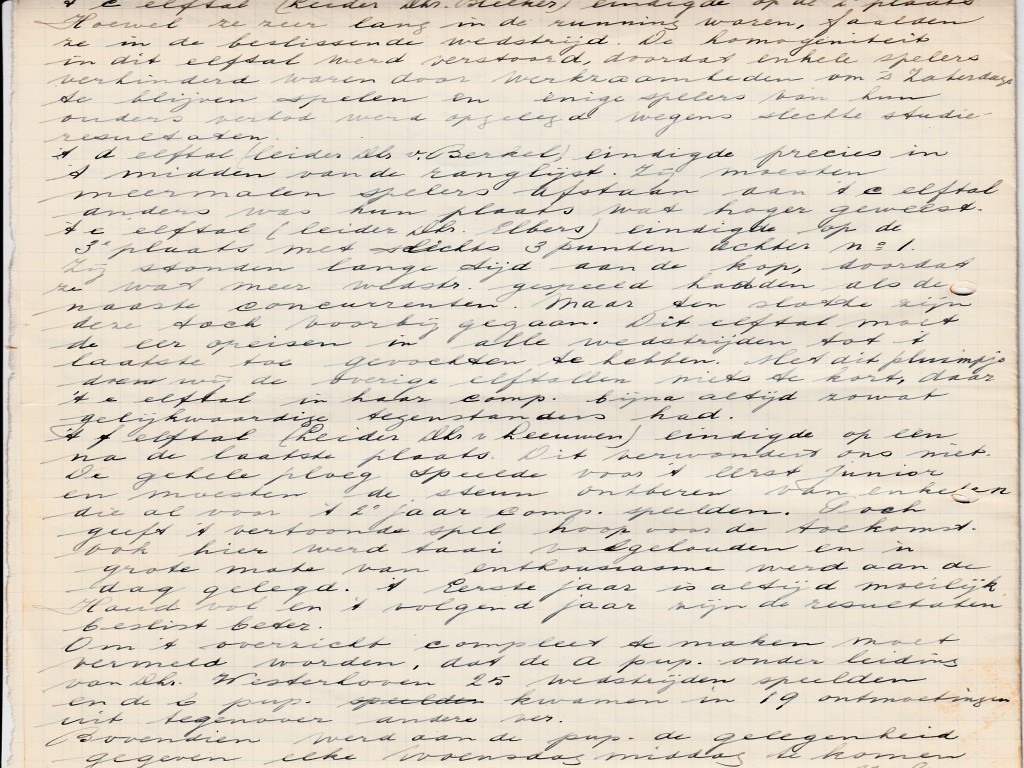 't c elftal (Leider Dhr. Bekker) eindigde op de 2e plaats
Hoewel ze zeer lang in de running waren, faalden
ze in de beslissende wedstrijd. De homogeniteit
in dit elftal werd verstoord, doordat enkele spelers
verhinderd waren door werkzaamheden om 's Zaterdags
te blijven spelen en enige spelers van hun
ouders verbod werd opgelegd wegens slechte studie-
resultaten.
't d elftal (leider Dhr v. Berkel) eindigde precies in
't midden van de ranglijst. Zij moesten
meermalen spelers afstaan aan 't c elftal
anders was hun plaats wat hoger geweest.
't e elftal (leider Dhr. Elbers) eindigde op de
3e plaats met slechts 3 punten achter no 1.
Zij stonden lange tijd aan de kop, doordat
ze wat meer wedstr. gespeeld hadden als de
naaste concurrenten. Maar ten slotte zijn
deze toch voorbij gegaan. Dit elftal moet
de eer opeisen in alle wedstrijden tot 't
laatste toe gevochten te hebben. Met dit pluimpje
doen wij de overige elftallen niets te kort, daar
't e elftal in haar comp. bijna altijd zowat
gelijkwaardige tegenstanders had.
't f elftal (Leider Dhr v Leeuwen) eindigde op een
na de laatste plaats. Dit verwondert ons niet.
De gehele ploeg speelde voor 't eerst junior
en moesten de steun ontberen van enkelen
die al voor 't 2e jaar comp. speelden. Toch
geeft 't vertoonde spel hoop voor de toekomst.
ook hier werd taai volgehouden en in
grote mate van enthousiasme werd aan de
dag gelegd. 't Eerste jaar is altijd moeilijk
Houd vol en 't volgend jaar zijn de resultaten
beslist beter.
Om 't overzicht compleet te maken moet
vermeld worden, dat de a pup. onder leiding
van Dhr. Westerhoven 25 wedstrijden speelden
en de b pup. speelden kwamen in 19 ontmoetingen
uit tegenover andere ver.
Bovendien werd aan de pup. de gelegenheid
gegeven elke Woensdag middag te komen